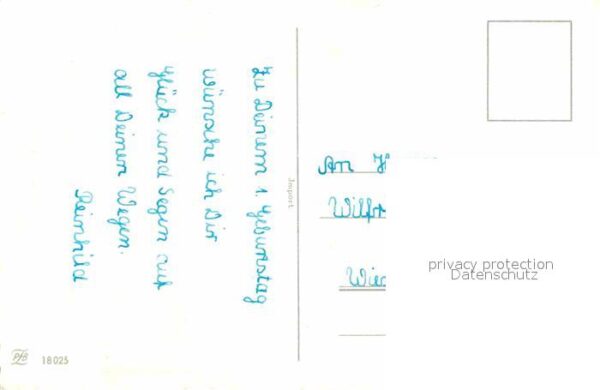 Zu Deinem 1. Geburtstag
wünsche ich Dir
Glück und Segen auf
all Deinen Wegen.
Reinhild
Import
An
privacy protection
Datenschutz
PFB 18025